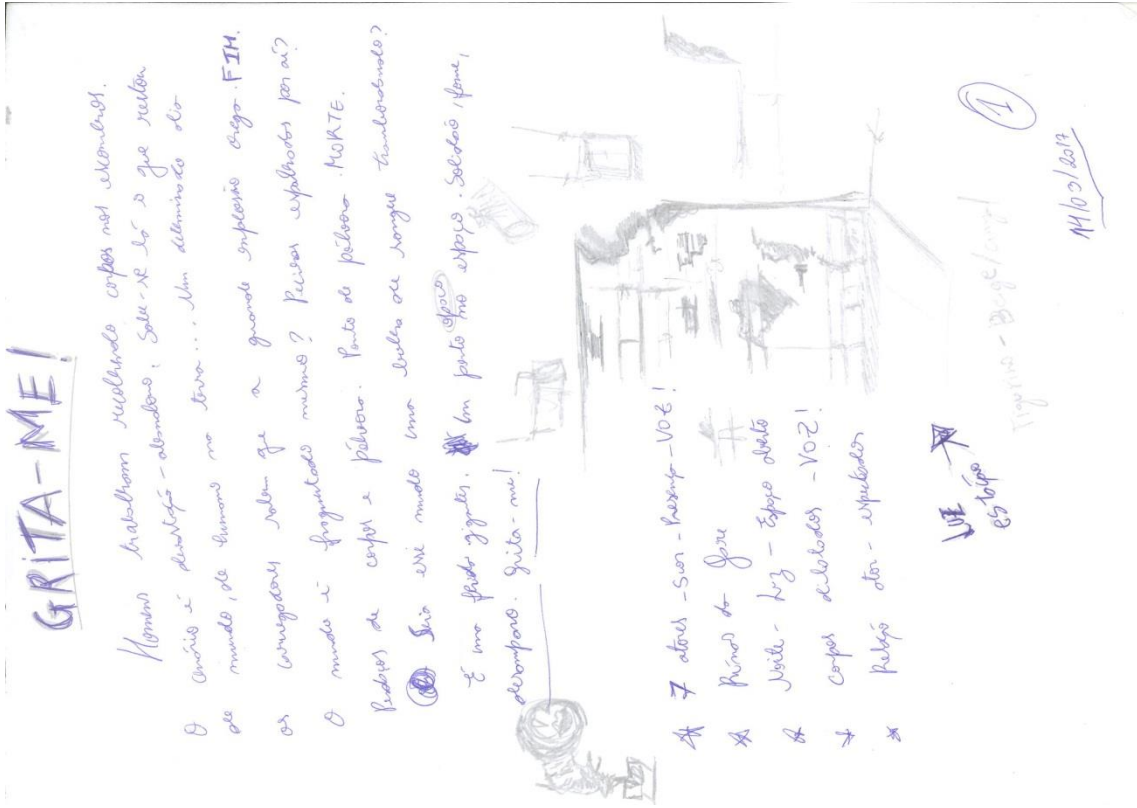 GRITA-ME!
Homens trabalham recolhendo corpos nos escombros.
O cenário é devastação - abandono. Sabe-se lá o que restou
de mundo, de humano na terra... Um determinado dia
os carregadores sabem que a grande explosão chega. FIM.
O mundo é fragmentado mesmo? Pedidos espalhados por aí?
Pedaços de corpos e pólvora. Ponto de pólvora. MORTE.
Seria esse mundo uma bolha de sangue transbordando?
É uma gigantes. Um ponto opaco no espaço. Solidão, fome,
desamparo. Grita-me!
7 atores - Suor - Presença - VOZ!
Ruínas da
Noite - Luz - Espaço aberto
corpos dilatados - VOZ!
Relação ator - espectador
LUZ
Figurino - Bege/
1
14/03/2017